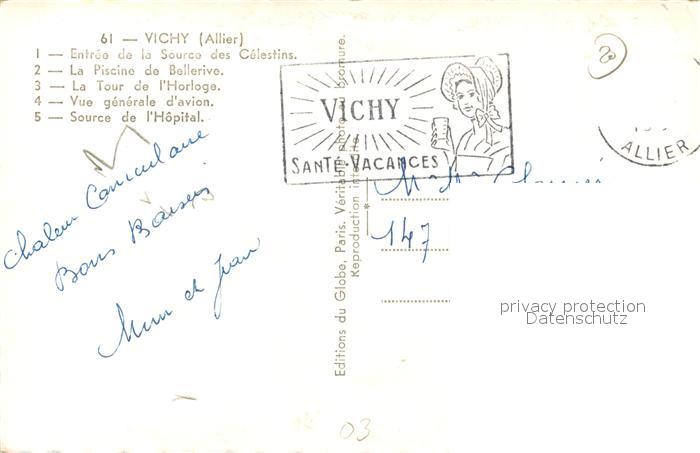 61 — VICHY (Allier)
1 — Entrée de la Source des Célestins.
2 — La Piscine de Bellerive.
3 — La Tour de l'Horloge.
4 — Vue générale d'avion.
5 — Source de l'Hôpital.
Chaleur Caniculaire
Bons Baisers
et Jean
Editions du Globe, Paris. Véritable photo au bromure.
Reproduction interdite.
VICHY
SANTÉ-VACANCES
ALLIER
147
privacy protection
Datenschutz
03